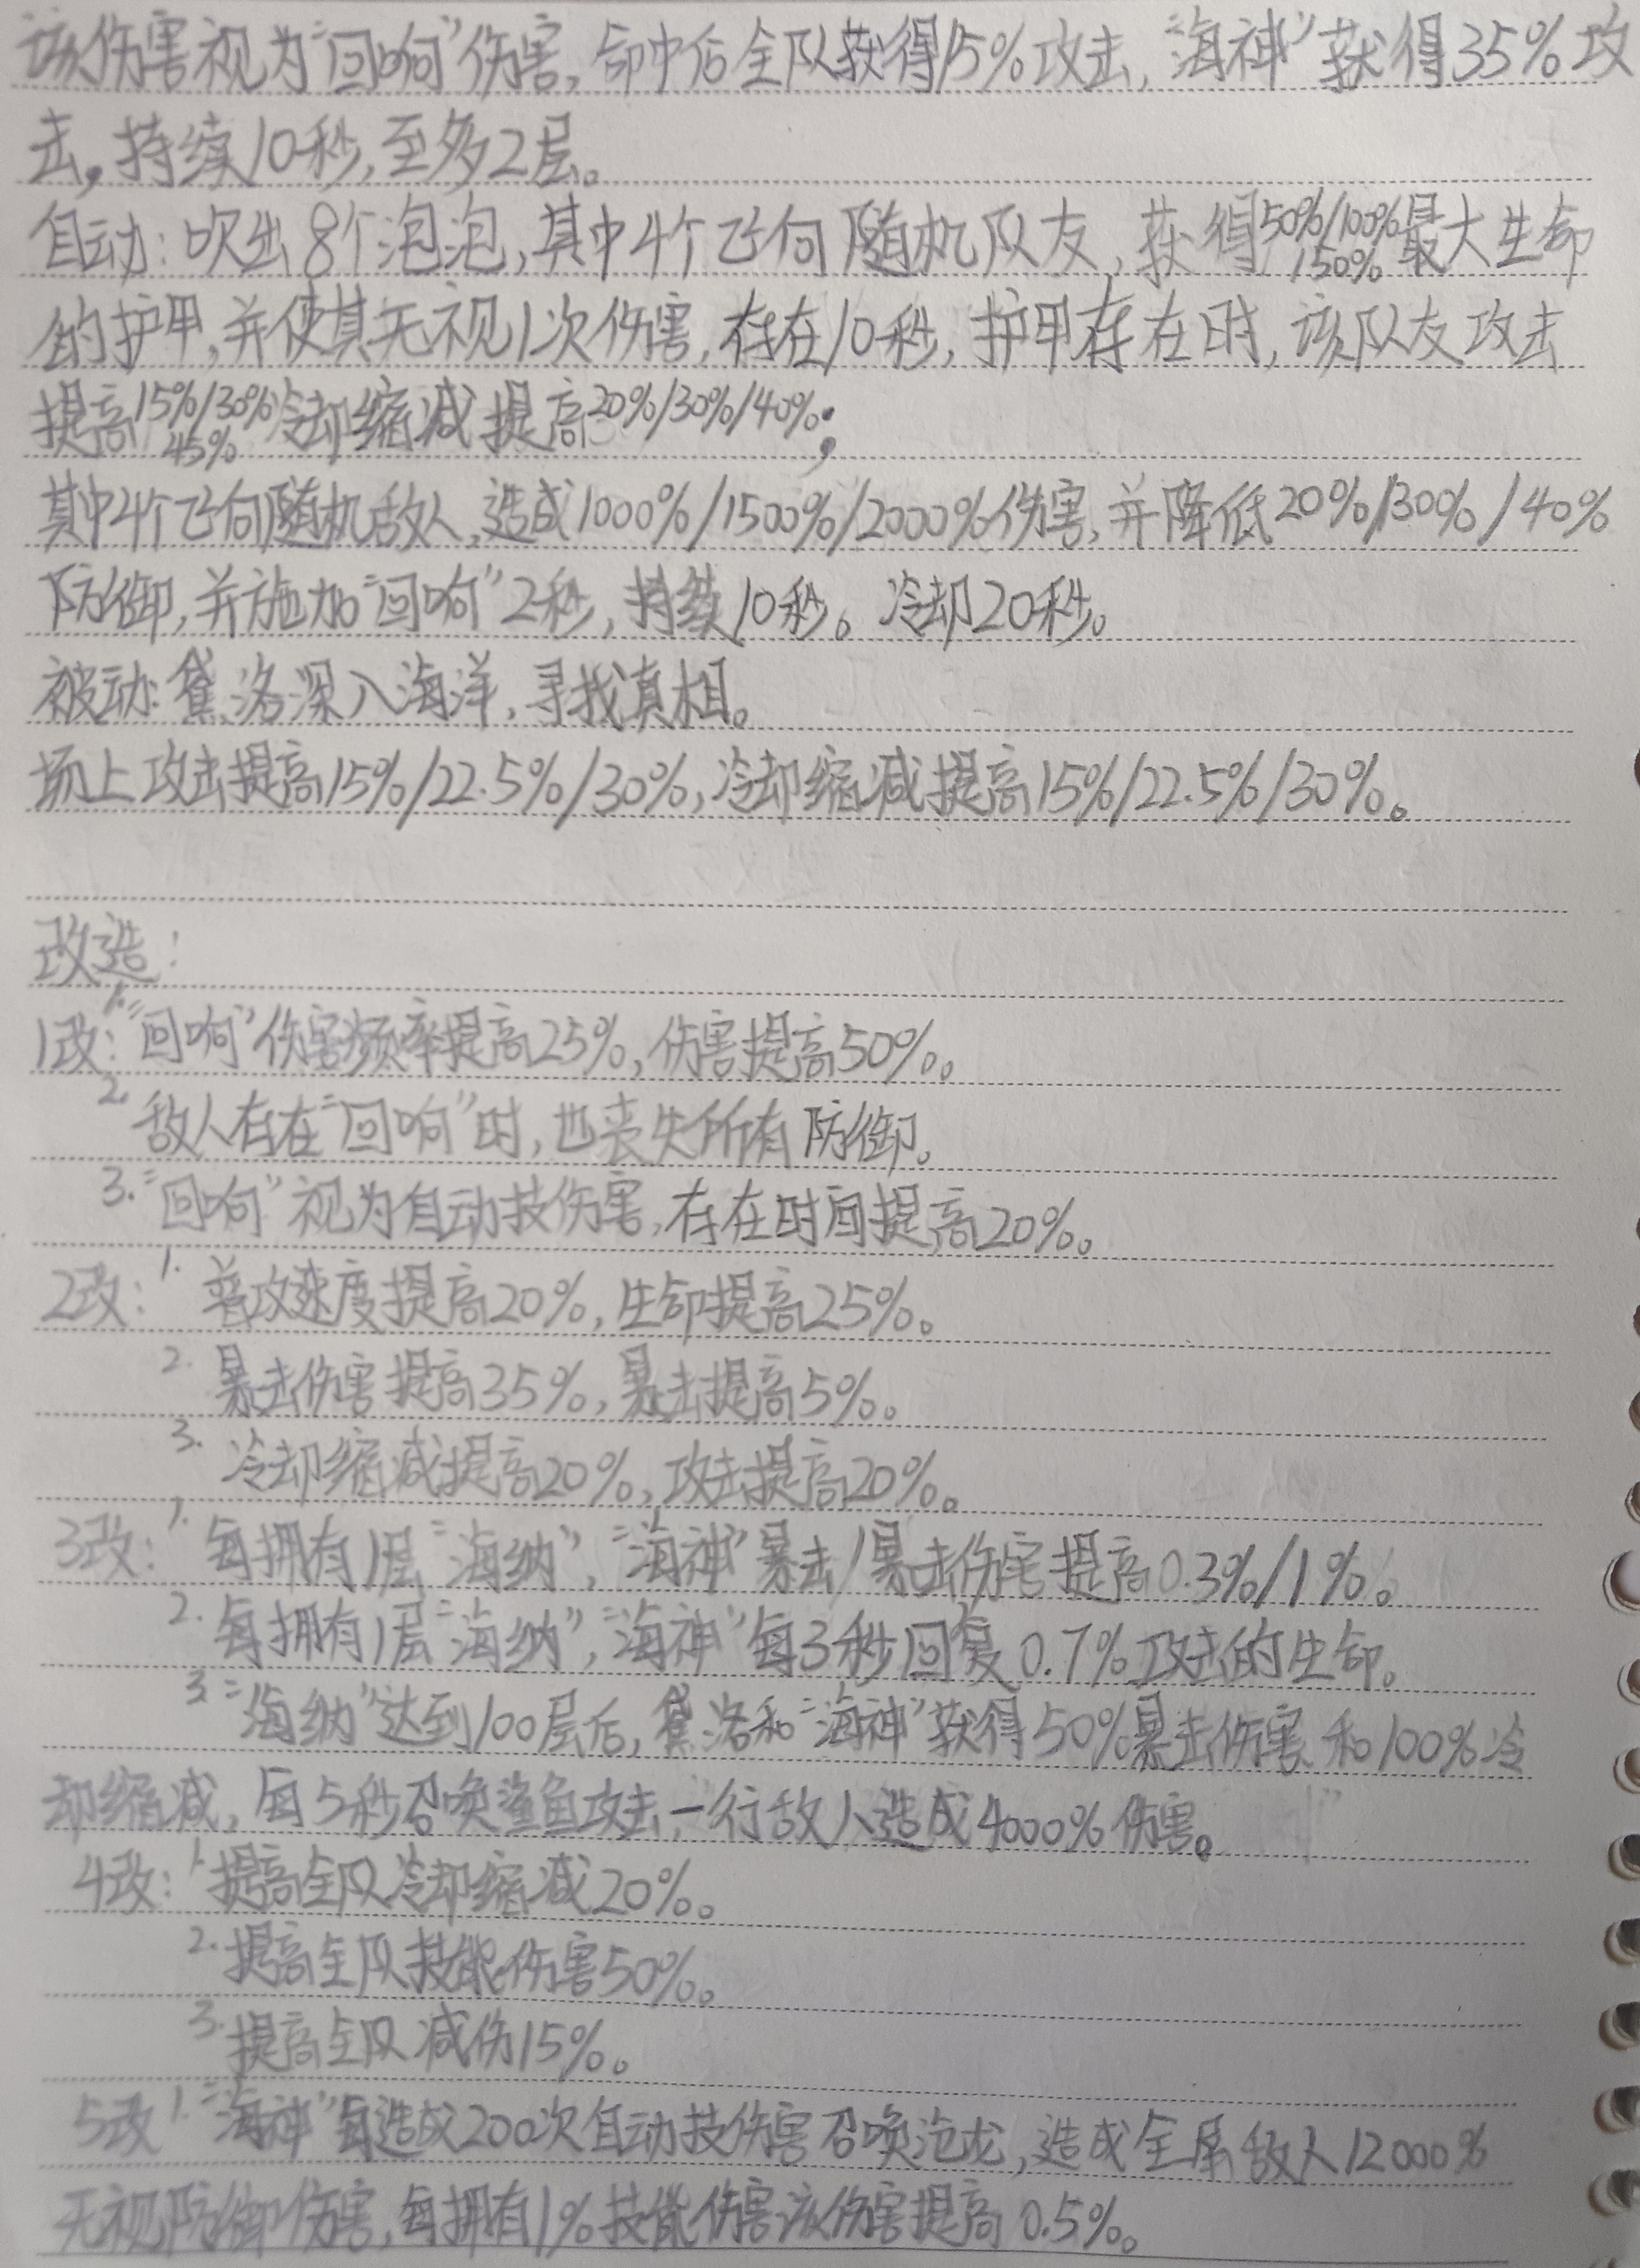 该伤害视为“回响”伤害，命中后全队获得15%攻击，“海神”获得35%攻
击，持续10秒，至多2层。
自动：吹出8个泡泡，其中4个飞向随机队友，获得50%/100%/150%最大生命
的护甲，并使其无视1次伤害，存在10秒，护甲存在时，该队友攻击
提高15%/30%/45%冷却缩减提高20%/30%/40%；
其中4个飞向随机敌人，造成1000%/1500%/2000%伤害，并降低20%/30%/40%
防御，并施加“回响”2秒，持续10秒。冷却20秒。
被动：黛洛深入海洋，寻找真相。
场上攻击提高15%/22.5%/30%，冷却缩减提高15%/22.5%/30%。
改造：
1改：1.“回响”伤害频率提高25%，伤害提高50%。
2.敌人存在“回响”时，也丧失所有防御。
3.“回响”视为自动技伤害，存在时间提高20%。
2改：1.普攻速度提高20%，生命提高25%。
2.暴击伤害提高35%，暴击提高5%。
3.冷却缩减提高20%，攻击提高20%。
3改：1.每拥有1层“海纳”，“海神”暴击/暴击伤害提高0.3%/1%。
2.每拥有1层“海纳”，“海神”每3秒回复0.7%攻击的生命。
3.“海纳”达到100层后，黛洛和“海神”获得50%暴击伤害和100%冷
却缩减，每5秒召唤鲨鱼攻击一行敌人造成4000%伤害。
4改：1.提高全队冷却缩减20%。
2.提高全队技能伤害50%。
3.提高全队减伤15%。
5改1.“海神”每造成200次自动技伤害召唤沧龙，造成全屏敌人12000%
无视防御伤害，每拥有1%技能伤害该伤害提高0.5%。